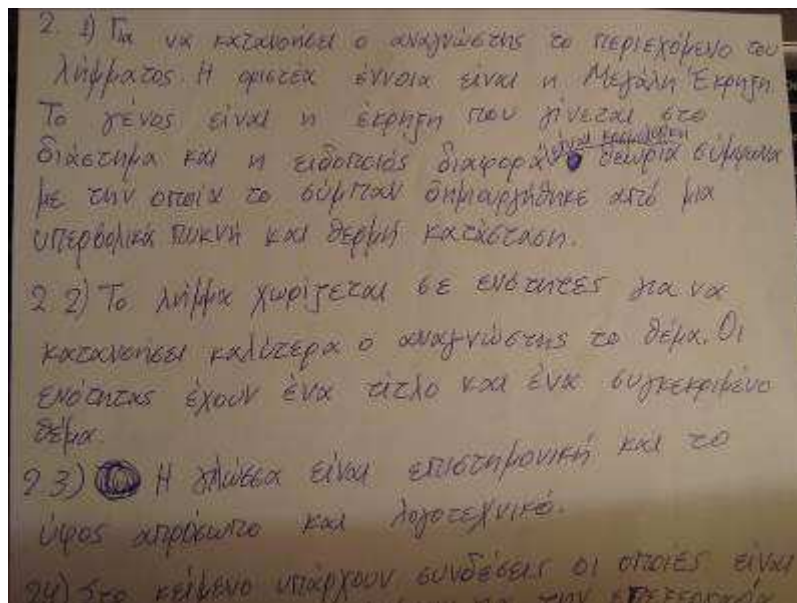 2. 1) Για να κατανοήσει ο αναγνώστης το περιεχόμενο του
λήμματος. Η οριστέα έννοια είναι η Μεγάλη Έκρηξη.
Το γένος είναι η έκρηξη που γίνεται στο
διάστημα και η ειδοποιός διαφορά είναι κοσμολογική θεωρία σύμφωνα
με την οποία το σύμπαν δημιουργήθηκε από μια
υπερβολικά πυκνή και θερμή κατάσταση.
2 2) Το λήμμα χωρίζεται σε ενότητες για να
κατανοήσει καλύτερα ο αναγνώστης το θέμα. Οι
ενότητας έχουν ένα τίτλο και ένα συγκεκριμένο
θέμα.
2.3) Η γλώσσα είναι επιστημονική και το
ύφος απρόσωπο και λογοτεχνικό.
24) Στο κείμενο υπάρχουν συνδέσεις οι οποίες είναι
την επεξεργασία